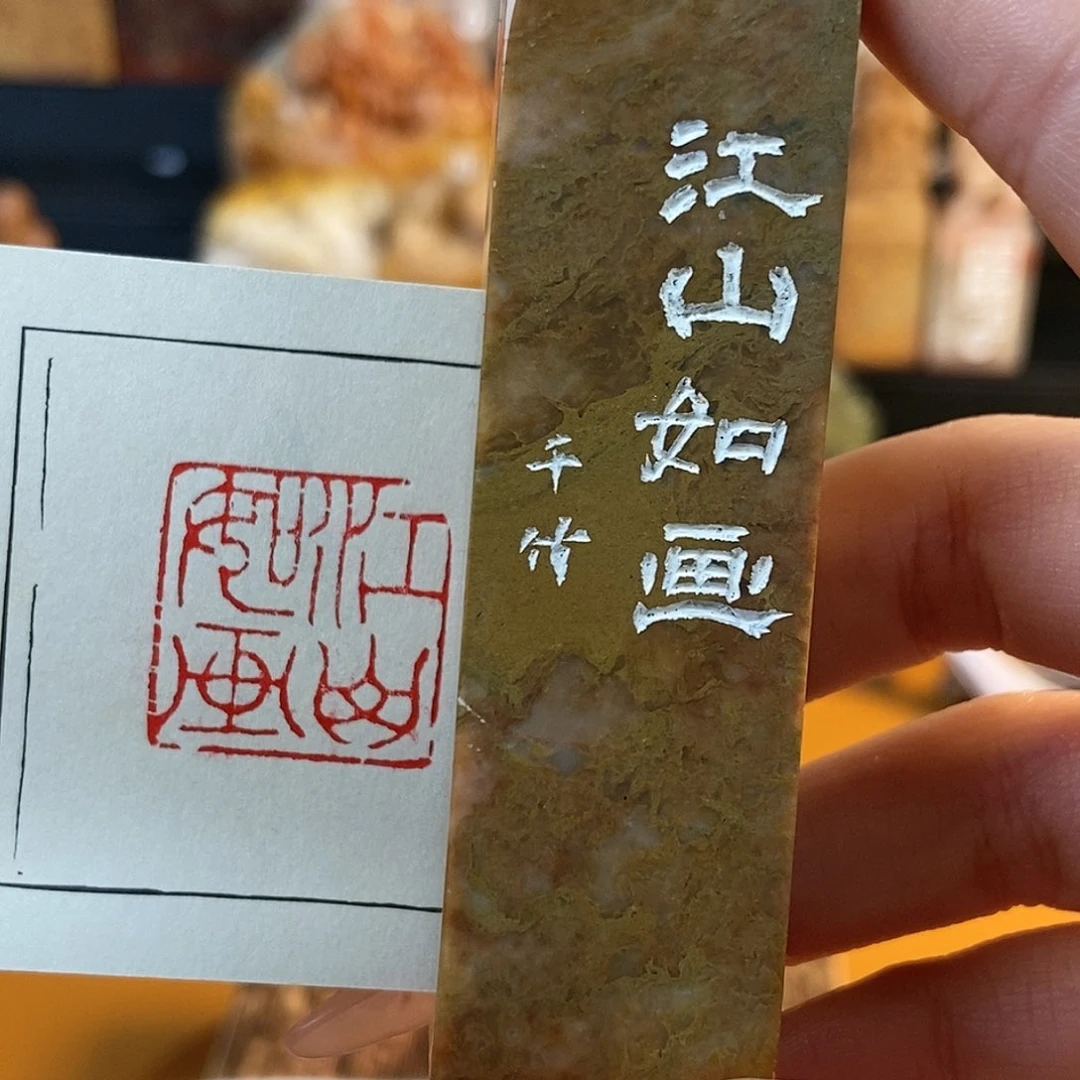 江山如画
千
江山
如画